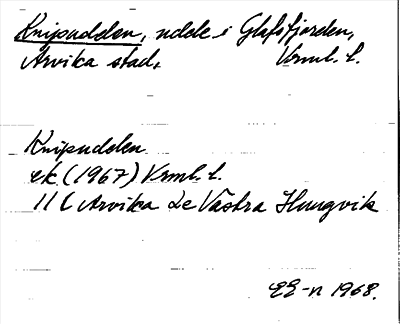 Knipudden, udde i Glafsfjorden,
Arvika stad, Vrml. l.
Knipudden
ek (1967) Vrml. l.
11 C Arvika 2e Västra Haugvik
EE-n 1968.